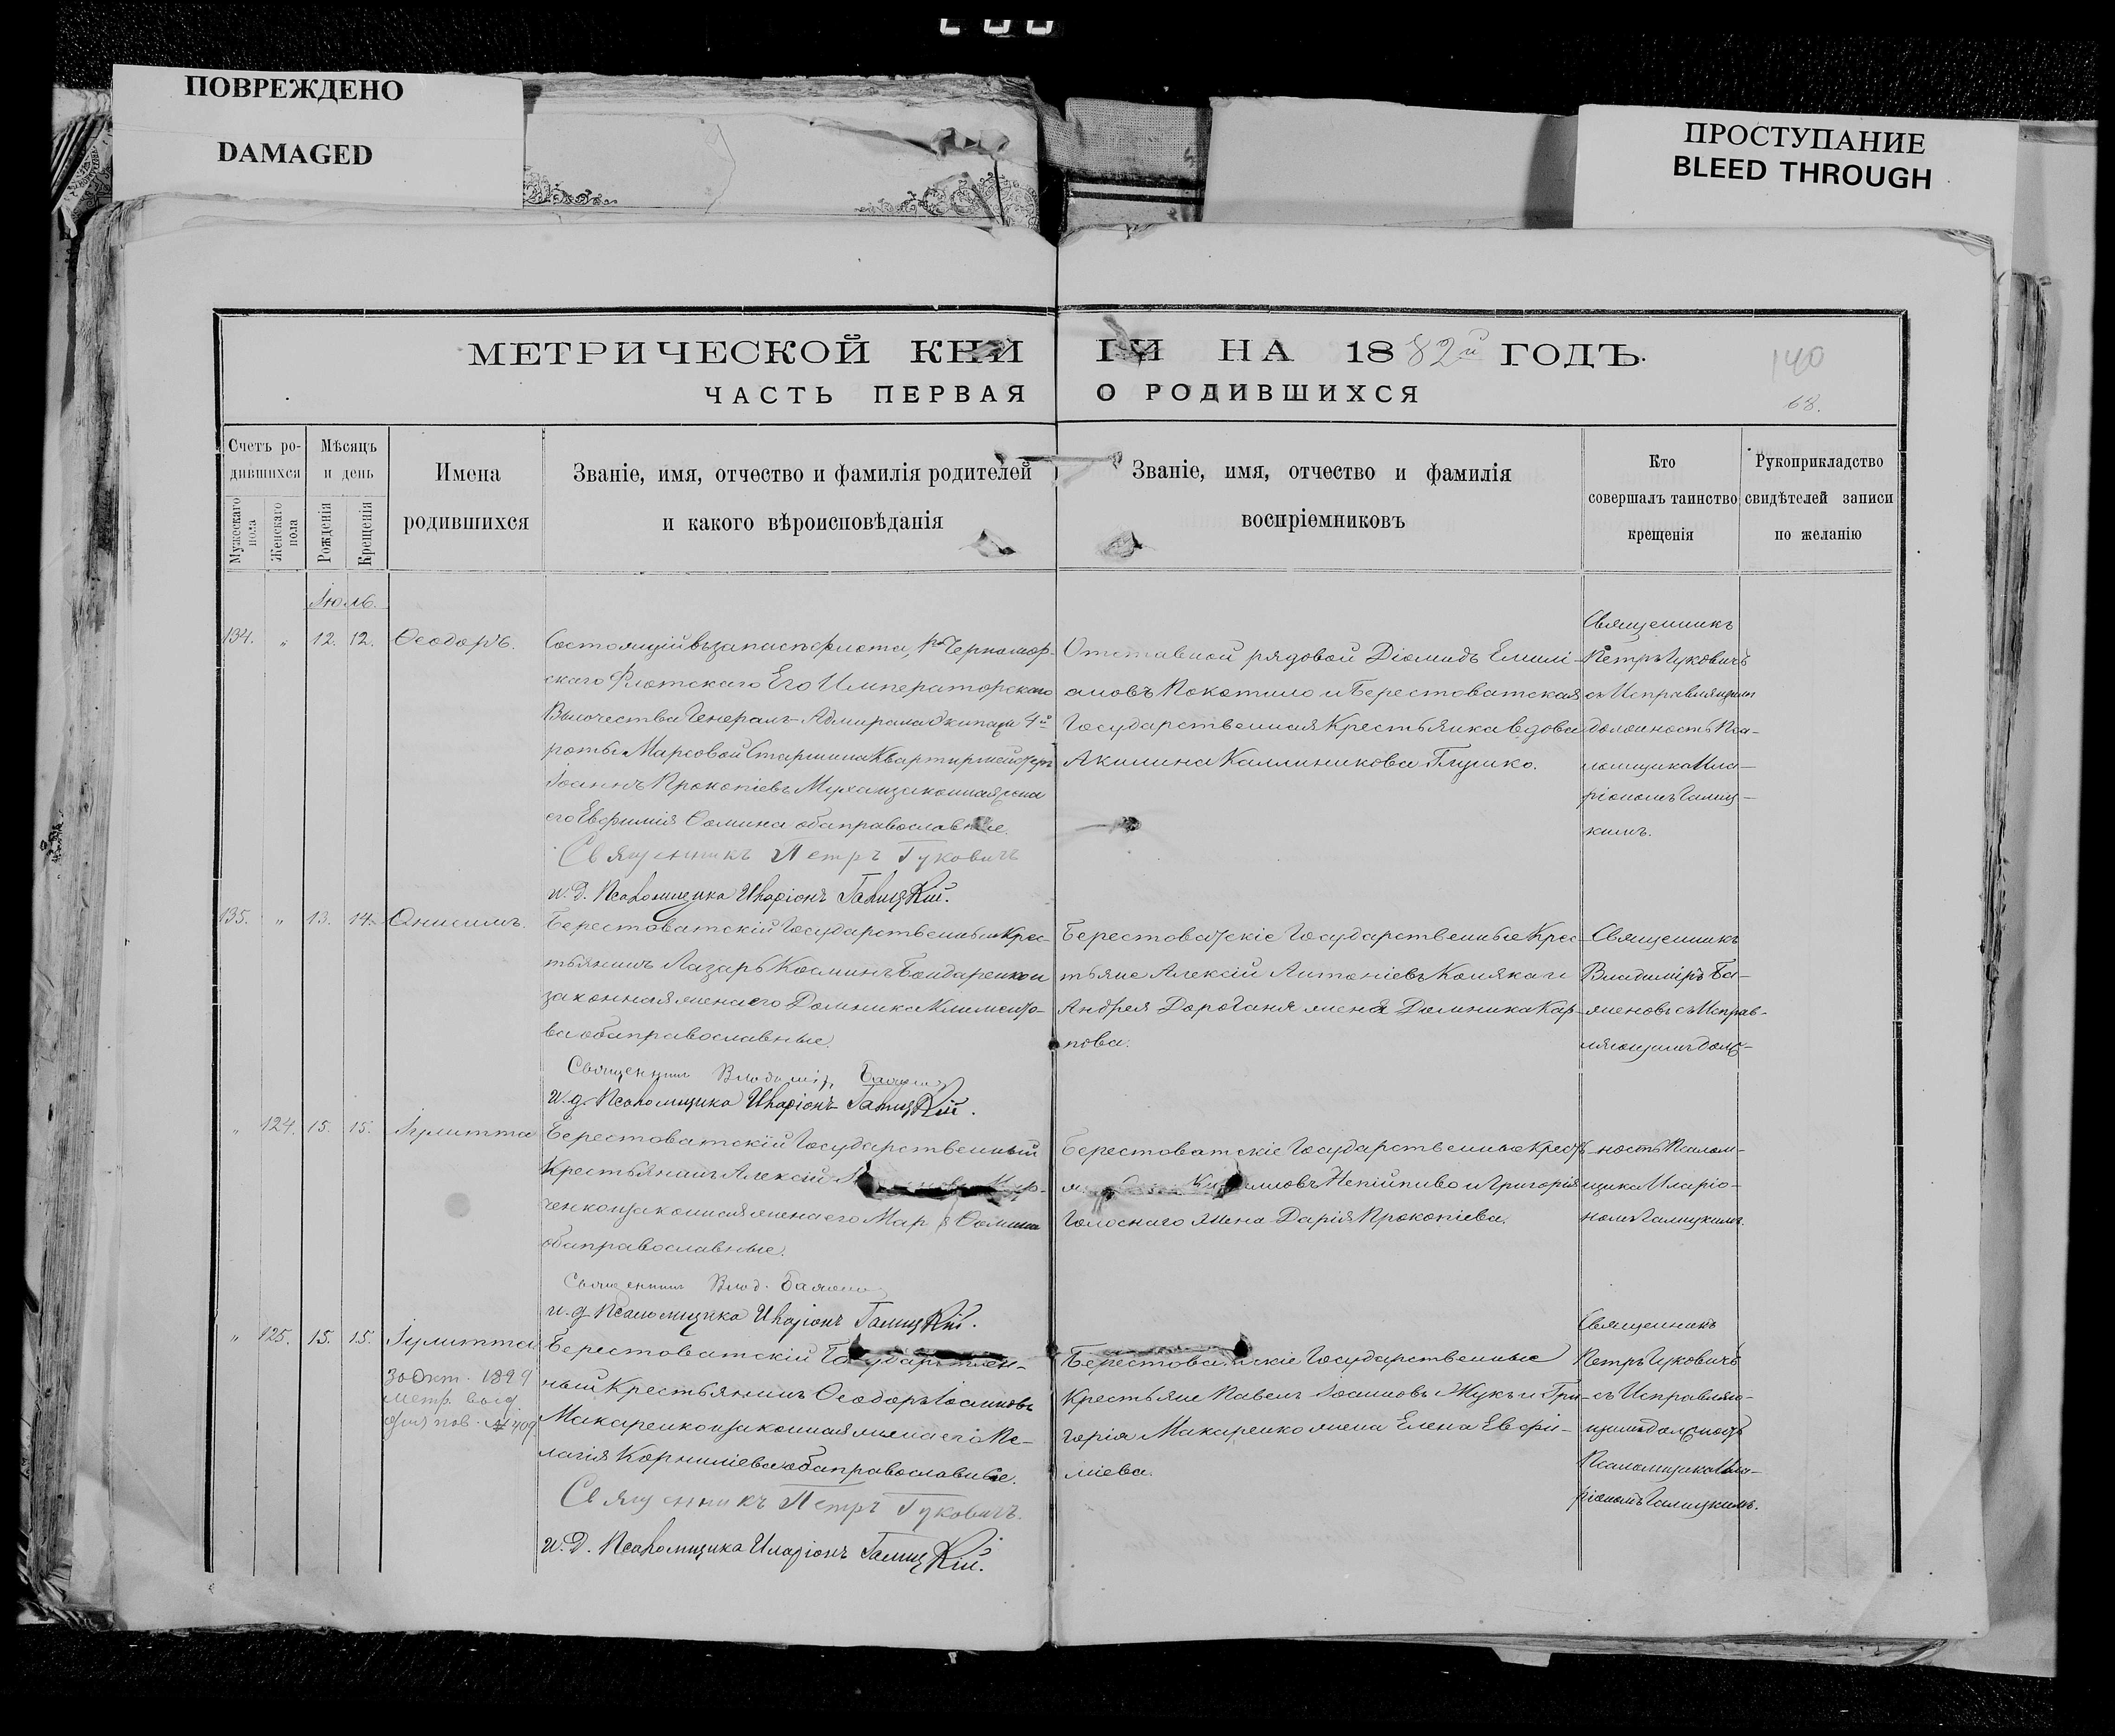 ПОВРЕЖДЕНО
DAMAGED
ПРОСТУПАНИЕ
BLEED THROUGH
МЕТРИЧЕСКОЙ КНИ ГИ НА 1882й ГОДЪ.
140
ЧАСТЬ ПЕРВАЯ О РОДИВШИХСЯ
68.
Счетъ ро-
дившихся
Мужескаго пола
Женскаго пола
Мѣсяцъ
и день
Рожденія
Крещенія
Имена
родившихся
Званіе, имя, отчество и фамилія родителей
и какого вѣроисповѣданія
Званіе, имя, отчество и фамилія
воспріемниковъ
Кто
совершалъ таинство
крещенія
Рукоприкладство
свидѣтелей записи
по желанію
Іюль.
134. " 12. 12. Ѳеодоръ.
Состоящій въ запасѣ флота 1го Черномор-
скаго Флотскаго Его Императорскаго
Высочества Генералъ-Адмирала Экипажа 4й
роты Марсовой Старшина Квартирмейстеръ
Іоаннъ Прокопіевъ законная жена
его Евфимія Ѳомина оба православные.
Священникъ Петръ Гуковичъ
и. д. Псаломщика Иларіонъ Галицкій.
Отставной рядовой Діомидъ Емилі-
ановъ Покотило и Берестоватская
Государственная Крестьянка вдова
Акилина Каллиникова Глушко.
Священникъ
Петръ Гуковичъ
съ Исправляющим
должность Пса-
ломщика Ила-
ріономъ Галиц-
кимъ.
135. " 13. 14. Онисимъ.
Берестоватскій Государственный Крес-
тьянинъ Лазарь Косминъ Бондаренко и
законная жена его Домника Клименто-
ва оба православные.
Священникъ Владиміръ
и. д. Псаломщика Иларіонъ Галицкій.
Берестоватскіе Государственные Крес-
тьяне Алексій Антоніевъ Коняка и
Андрея Дороганя жена Домника Кар-
пова.
Священникъ
Владиміръ Ба-
женовъ съ Исправ-
ляющимъ долж-
" 124. 15. 15. Іулитта
Берестоватскій Государственный
Крестьянинъ Алексій
ченко и законная жена его Ѳомина
оба православные.
Священникъ Влад.
и. д. Псаломщика Иларіонъ Галицкій.
Берестоватскіе Государственные Кресть
Непійпиво и Григорія
Голоснаго жена Дарія Прокопіева.
ность Псалом-
щика Иларіо-
номъ Галицкимъ.
" 125. 15. 15. Іулитта
30 Окт. 1899
метр. выд
для пов. № 409
Берестоватскій Государствен-
ный Крестьянинъ Ѳеодоръ Іоанновъ
Макаренко и законная жена его Пе-
лагія Корниліева оба православные.
Священникъ Петръ Гуковичъ.
и. д. Псаломщика Иларіонъ Галицкій.
Берестоватскіе Государственные
Крестьяне Павелъ Іоанновъ Жукъ и Гри-
горія Макаренко жена Елена Евфи-
міева.
Священникъ
Петръ Гуковичъ
съ Исправляю-
щимъ должность
Псаломщика Ила-
ріономъ Галицкимъ.